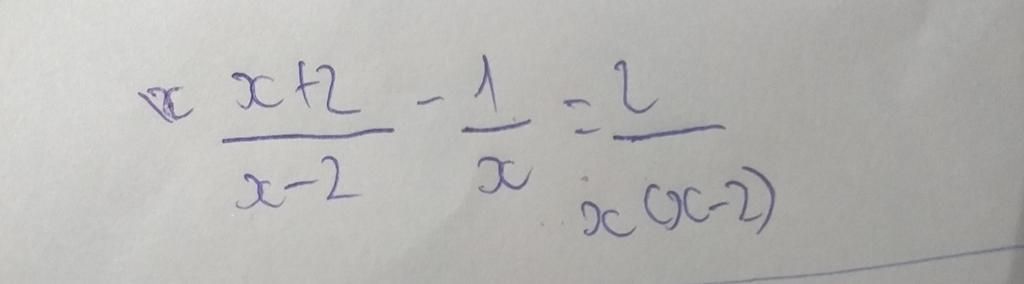 x (x+2)/(x-2) - 1/x = 2/(x(x-2))